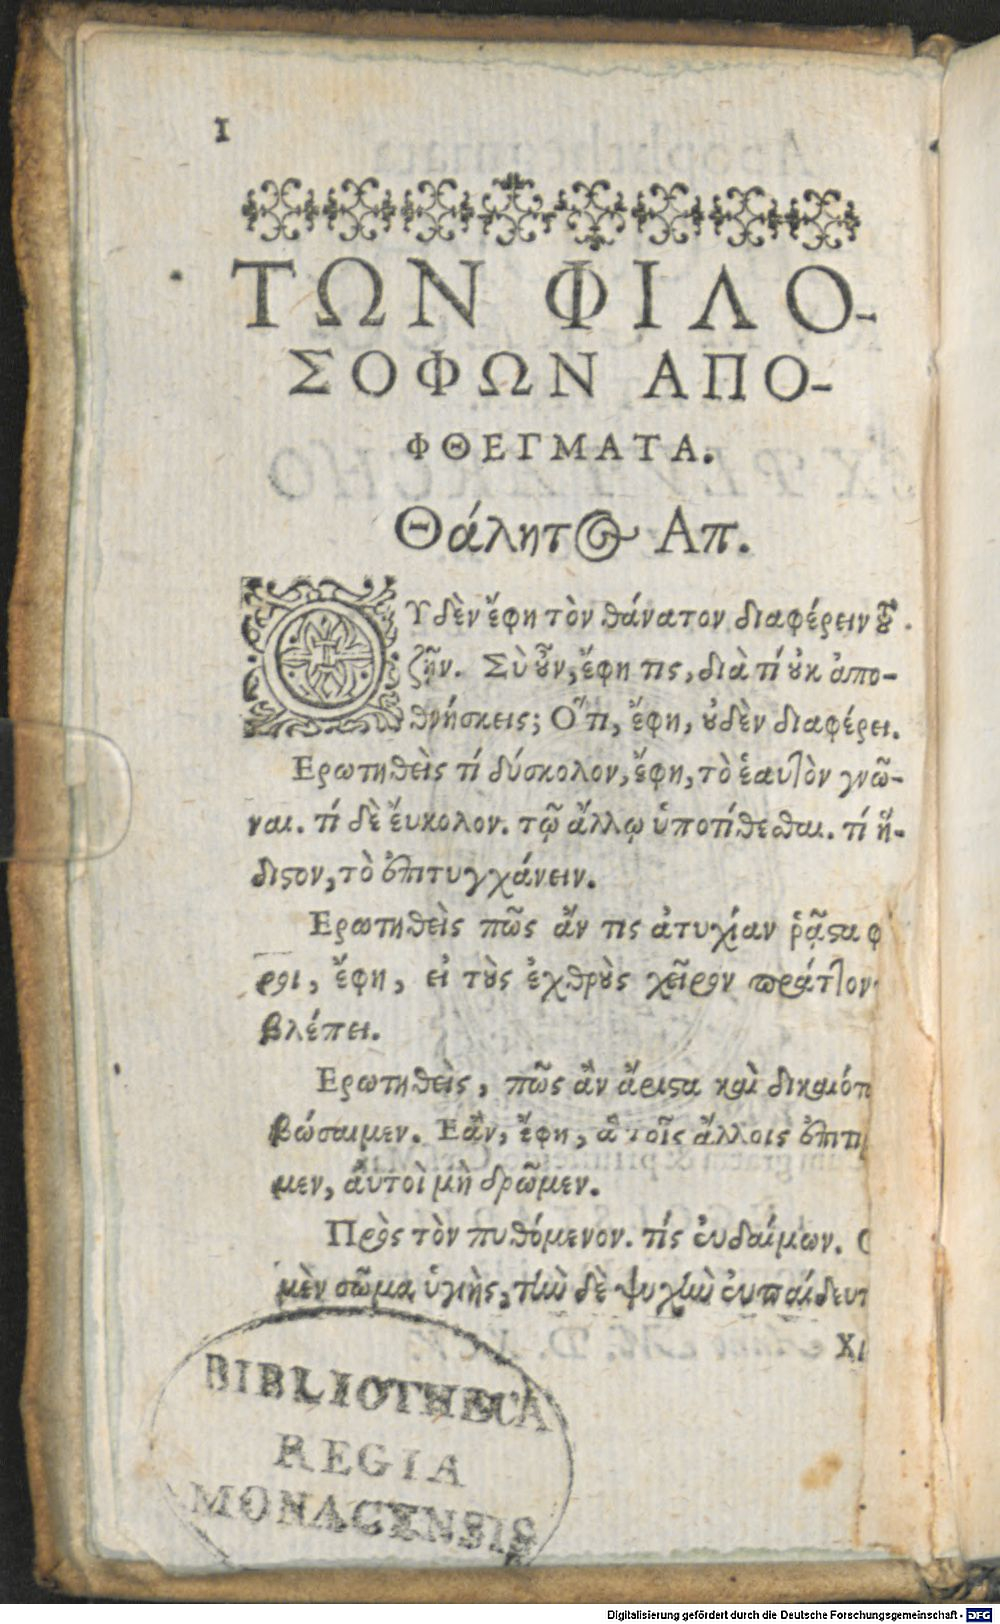 1
ΤΩΝ ΦΙΛΟ-
ΣΟΦΩΝ ΑΠΟ-
ΦΘΕΓΜΑΤΑ.
Θάλητος Απ.
ΟΥδὲν ἔφη τὸν θάνατον διαφέρειν τοῦ
ζῆν. Σὺ οὖν, ἔφη τις, διὰ τί οὐκ ἀπο-
θνήσκεις; Ὅτι, ἔφη, οὐδὲν διαφέρει.
Ερωτηθεὶς τί δύσκολον, ἔφη, τὸ ἑαυτὸν γνῶ-
ναι. τί δὲ ἔυκολον. τῷ ἄλλῳ ὑποτίθεσθαι. τί ἥ-
διστον, τὸ ἐπιτυγχάνειν.
Ερωτηθεὶς πῶς ἄν τις ἀτυχίαν ῥᾷστα φ
ροι, ἔφη, εἰ τοὺς ἐχθροὺς χεῖρον πράττον
βλέπει.
Ερωτηθεὶς, πῶς ἂν ἄριστα καὶ δικαιότ
βώσαιμεν. Εὰν, ἔφη, ἃ τοῖς ἄλλοις ἐπιτι
μεν, ἀυτοὶ μὴ δρῶμεν.
Πρὸς τὸν πυθόμενον. τίς ἐυδαίμων. Ο
μὲν σῶμα ὑγιὴς, τὴν δὲ ψυχὴν ἐυπαίδευτ
BIBLIOTHECA
REGIA
MONACENSIS
Digitalisierung gefördert durch die Deutsche Forschungsgemeinschaft - DFG